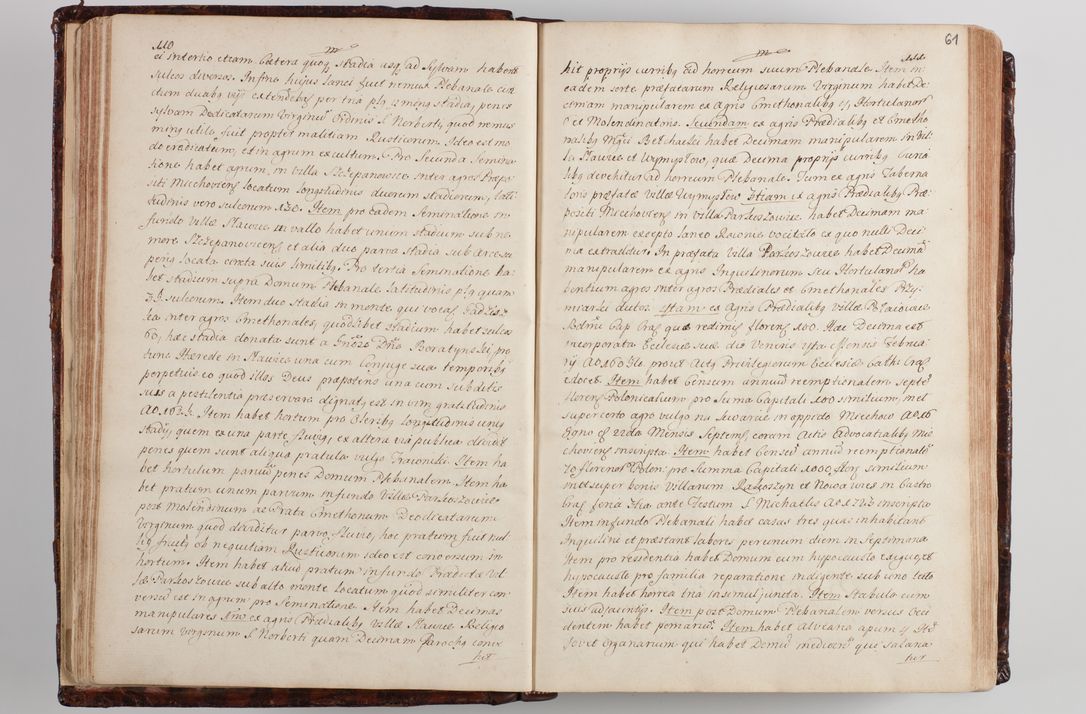 110
m
ei interlio etiam Cætera quoq stadia usq ad Sylvam habent
sulcos diversos. Infine hujus lanei fuit nemus Plebanale
duabq vijs extendebaς per tria penes
Sylvam Dedicatarum Virginũ Ordinis S. Norberti, quod nemus
utile fuit propter malitiam Rusticorum ideo est mo
do eradicatum, et in agrum excultum. Pro Secunda Semina
tione habet agrum, in villa Szczepanowice inter agros Præpo
siti Miechoviens locatum longitudinis duorum stadiorum, lati
tudinis vero sulcorum 130. Item pro eadem Seminatione in
fundo villæ Slavice in vallo habet unum stadium sub ne
more Szczepanoviceñ, et alia duo parva stadia sub
locata cæteta suis similibq. Pro tertia Seminatione ha
bet stadium supra Domum Plebanale latitudinis plq quam
33 sulcorum. Item duo stadia in monte, qui vocaς
inter agros Cmethonales, quodlibet stadium habet sulcos
60, hæc stadia donata sunt a Gnõso Dño Boratynski pro
tunc Hærede in Slavice una cum Conjuge sua temporibq
perpetuis eo quod illos Deus præpotens una cum subdelis
suis a pestilentia præservare dignatq est in vim gratitudinis
A0 1633. Item habet hortum pro Oleribq longitudinis unius
stadij, quem ex una parte fluviq, ex altera via publica dividit
penes quem sunt aliqua pratula vulgo Trawniki. Item ha
bet hortulum parvũ penes Domum Plebanalem. Item ha
bet pratum unum parvum in fundo villæ Parkoszowice
post Molendinum ac Prata Cmethonum Deodicatarum
Virginum quod dividitur parvo fluvio, hoc pratum fuit nul
liq fructq ob nequitiam Rusticorum ideo est conversum in
hortum. Item habet aliud pratum in fundo Prædictæ Vil
læ Parkoszowice sub alto monte locatum quod similiter con
versũ est in agrum pro Seminatione. Item habet Decimas
manipulares Imo ex agris Prædialibq villæ Slavice Religio
sarum Virginum S. Norberti quam Decimam Parochq convo
hit
61
m
hit proprijs curribq ad horreum suum Plebanale. Item in
eadem sorte præfatarum Religiosarum Virginum habet De
cimam manipularem ex Agris Cmethonalibq Hortulanorũ
et Molendinatoris. Secundam ex agris Prædialibq et Cmetho
nalibq Mgci habet Decimam manipularem in vil
la Slavice et Uzmysłow, quæ Decima proprijs curribq Curia
libq devehitur ad horreum Plebanale. Tum ex agris Taberna
toris præfatæ villæ Uzmysłow Etiam ex agris Prædialibq Præ
positi Miechoviens in villa Parkoszowice habet Decimam ma
nipularem excepto laneo vocitato ex quo nulli Deci
ma extraditur. In præfata villa Parkoszowice habet Decimã
manipularem ex agris Inquilinorum seu Hortulanorũ ha
bentium agros inter agros Prædiales et Cmethonales
dictos. Itam ex Agris Prædialibq villæ
Cap Crac quæ redimiς florens 100. Hæc Decima est
incorporata Ecclesiæ suæ die Veneris Februa
rij A0 1630 prout Acta Privilegiorum Ecclesiæ Cathi Crac
edocet. Item habet Censum annuũ reemptionalem septẽ
florens Polonicalium pro Summa Capitali 100 similium, inet
super certo agro vulgo na Siwarcie in oppido Miechow A0 16
22da Mensis Septemς coram Actis Advocatialibq Mie
choviens inscripta. Item habet Censũ annuũ reemptionalẽ
70 florenos Polon: pro Summa Capitali 1000 flors similium
inet super bonis villarum Rakoszyn et Nova wies in Castro
Crac feria 3tia ante Festum S. Michaelis A0 1723 inscripta
Item in fundo Plebanali habet casas tres quas inhabitant
Inquilini et præstant labores per unum diem in Septimana
Item pro residentia habet Domum cum hypocausto
hypocausto pro familia reparatione indigente sub uno tecto
Item habet horrea tria insimul juncta. Item Stabula cum
suis adjacentijs. Item post Domum Plebanalem versus Occi
dentem habet pomariũ. Item habet Alvearia apum
fovet Organarum qui habet Domũ mediocrẽ qui salaria
tur